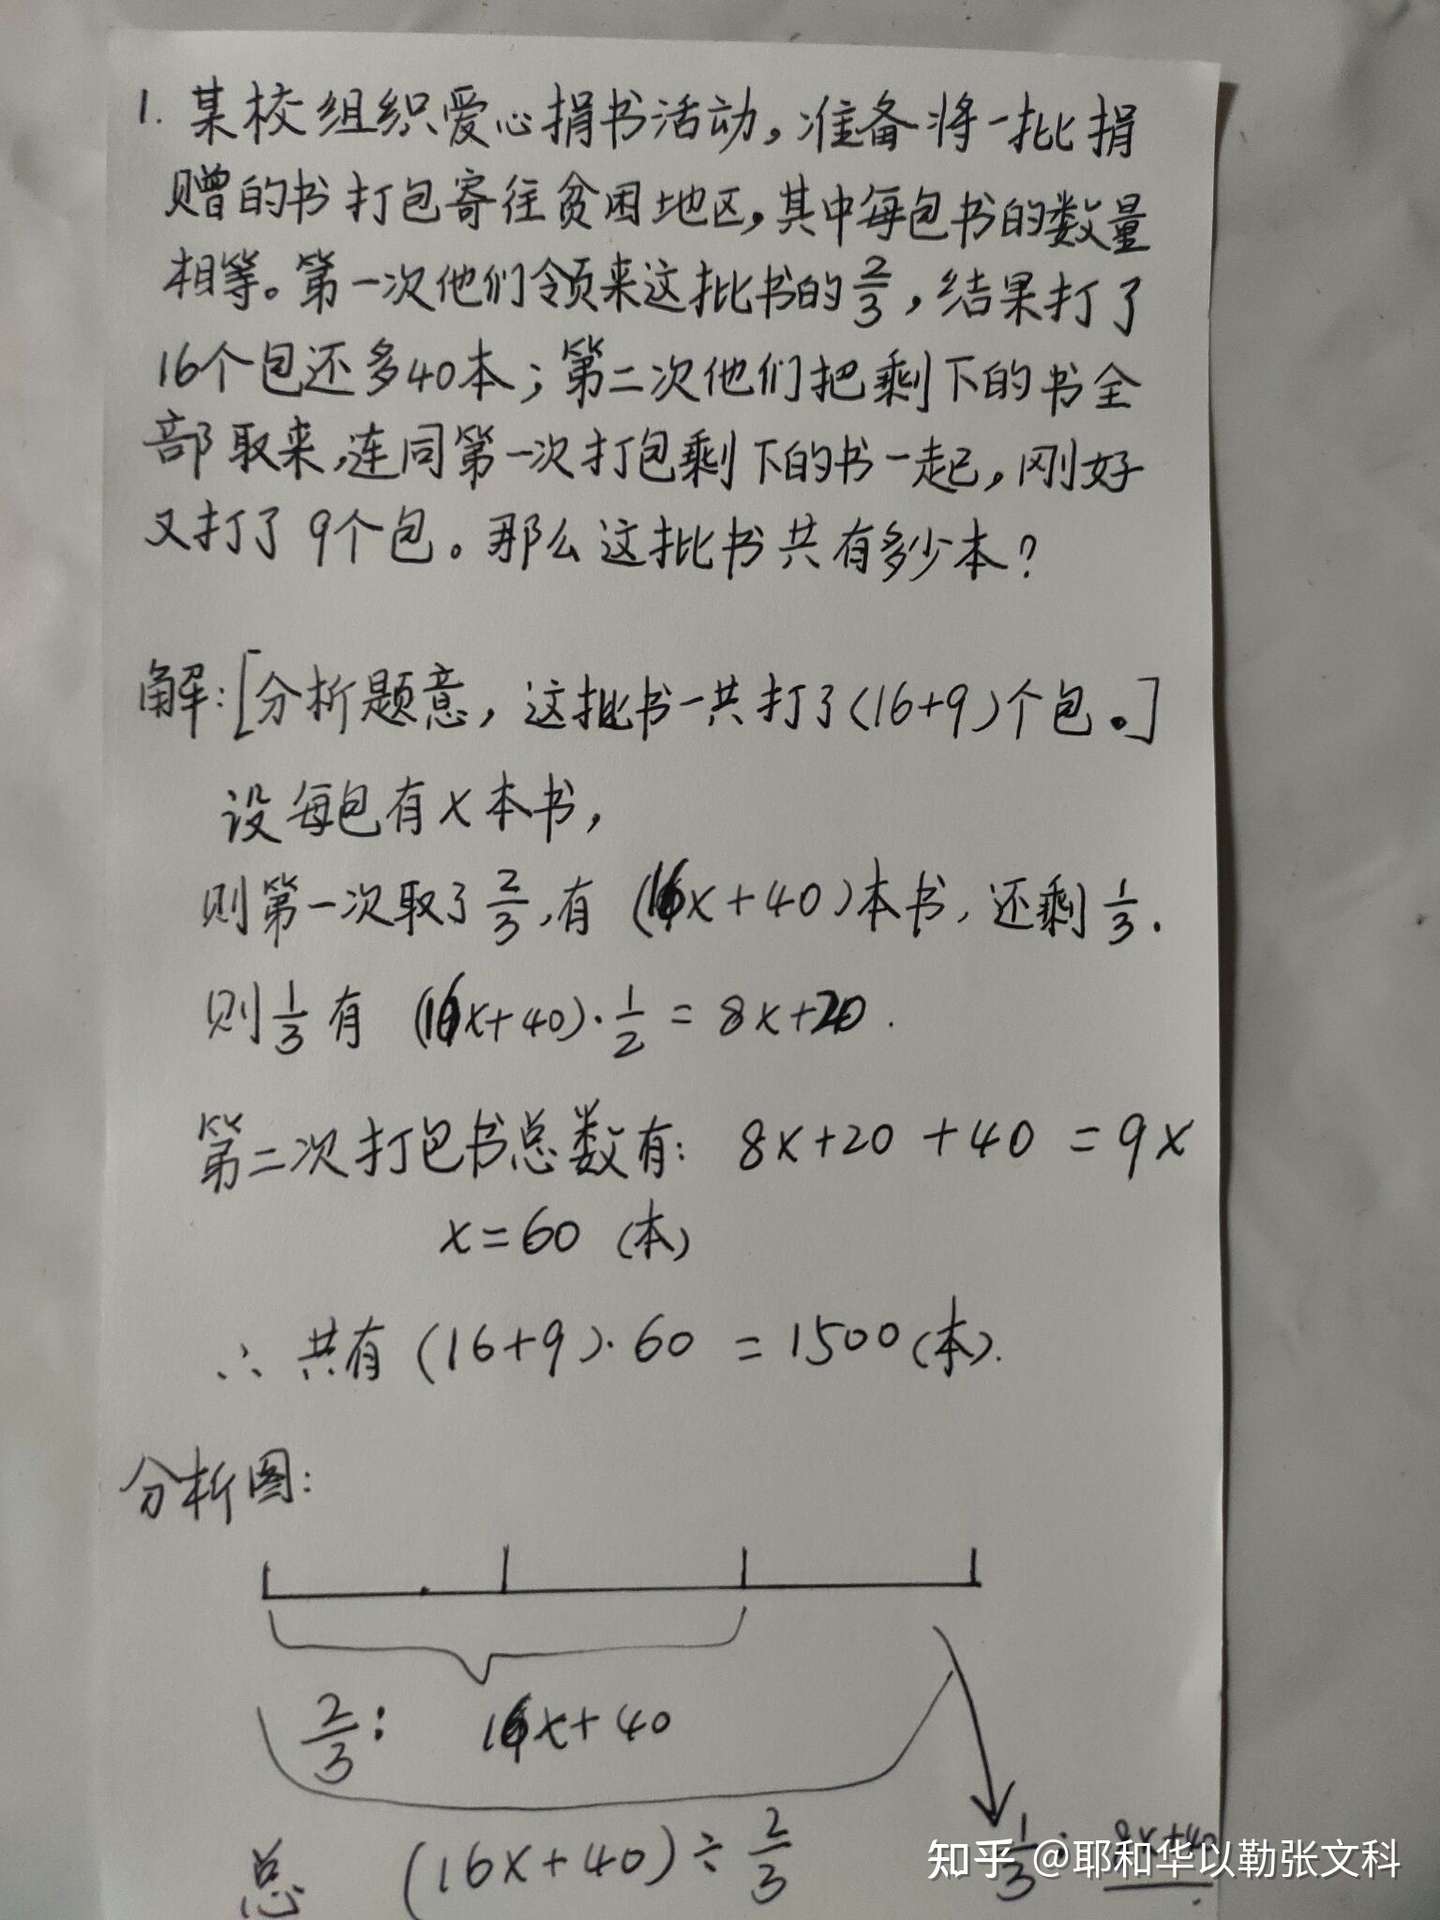 1. 某校组织爱心捐书活动,准备将一批捐
赠的书打包寄往贫困地区,其中每包书的数量
相等。第一次他们领来这批书的2/3,结果打了
16个包还多40本;第二次他们把剩下的书全
部取来,连同第一次打包剩下的书一起,刚好
又打了9个包。那么这批书共有多少本?
解:[分析题意,这批书一共打了(16+9)个包。]
设每包有x本书,
则第一次取了2/3,有(16x+40)本书,还剩1/3.
则1/3有 (16x+40)·1/2=8x+20.
第二次打包书总数有: 8x+20+40=9x
x=60 (本)
∴ 共有(16+9)·60=1500(本).
分析图:
2/3: 16x+40
总 (16x+40)÷2/3
1/3:
知乎 @耶和华以勒张文科